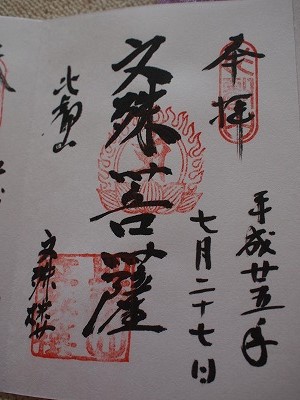 奉拝
平成廿五年
七月二十七日
文殊菩薩
比叡山
文殊楼